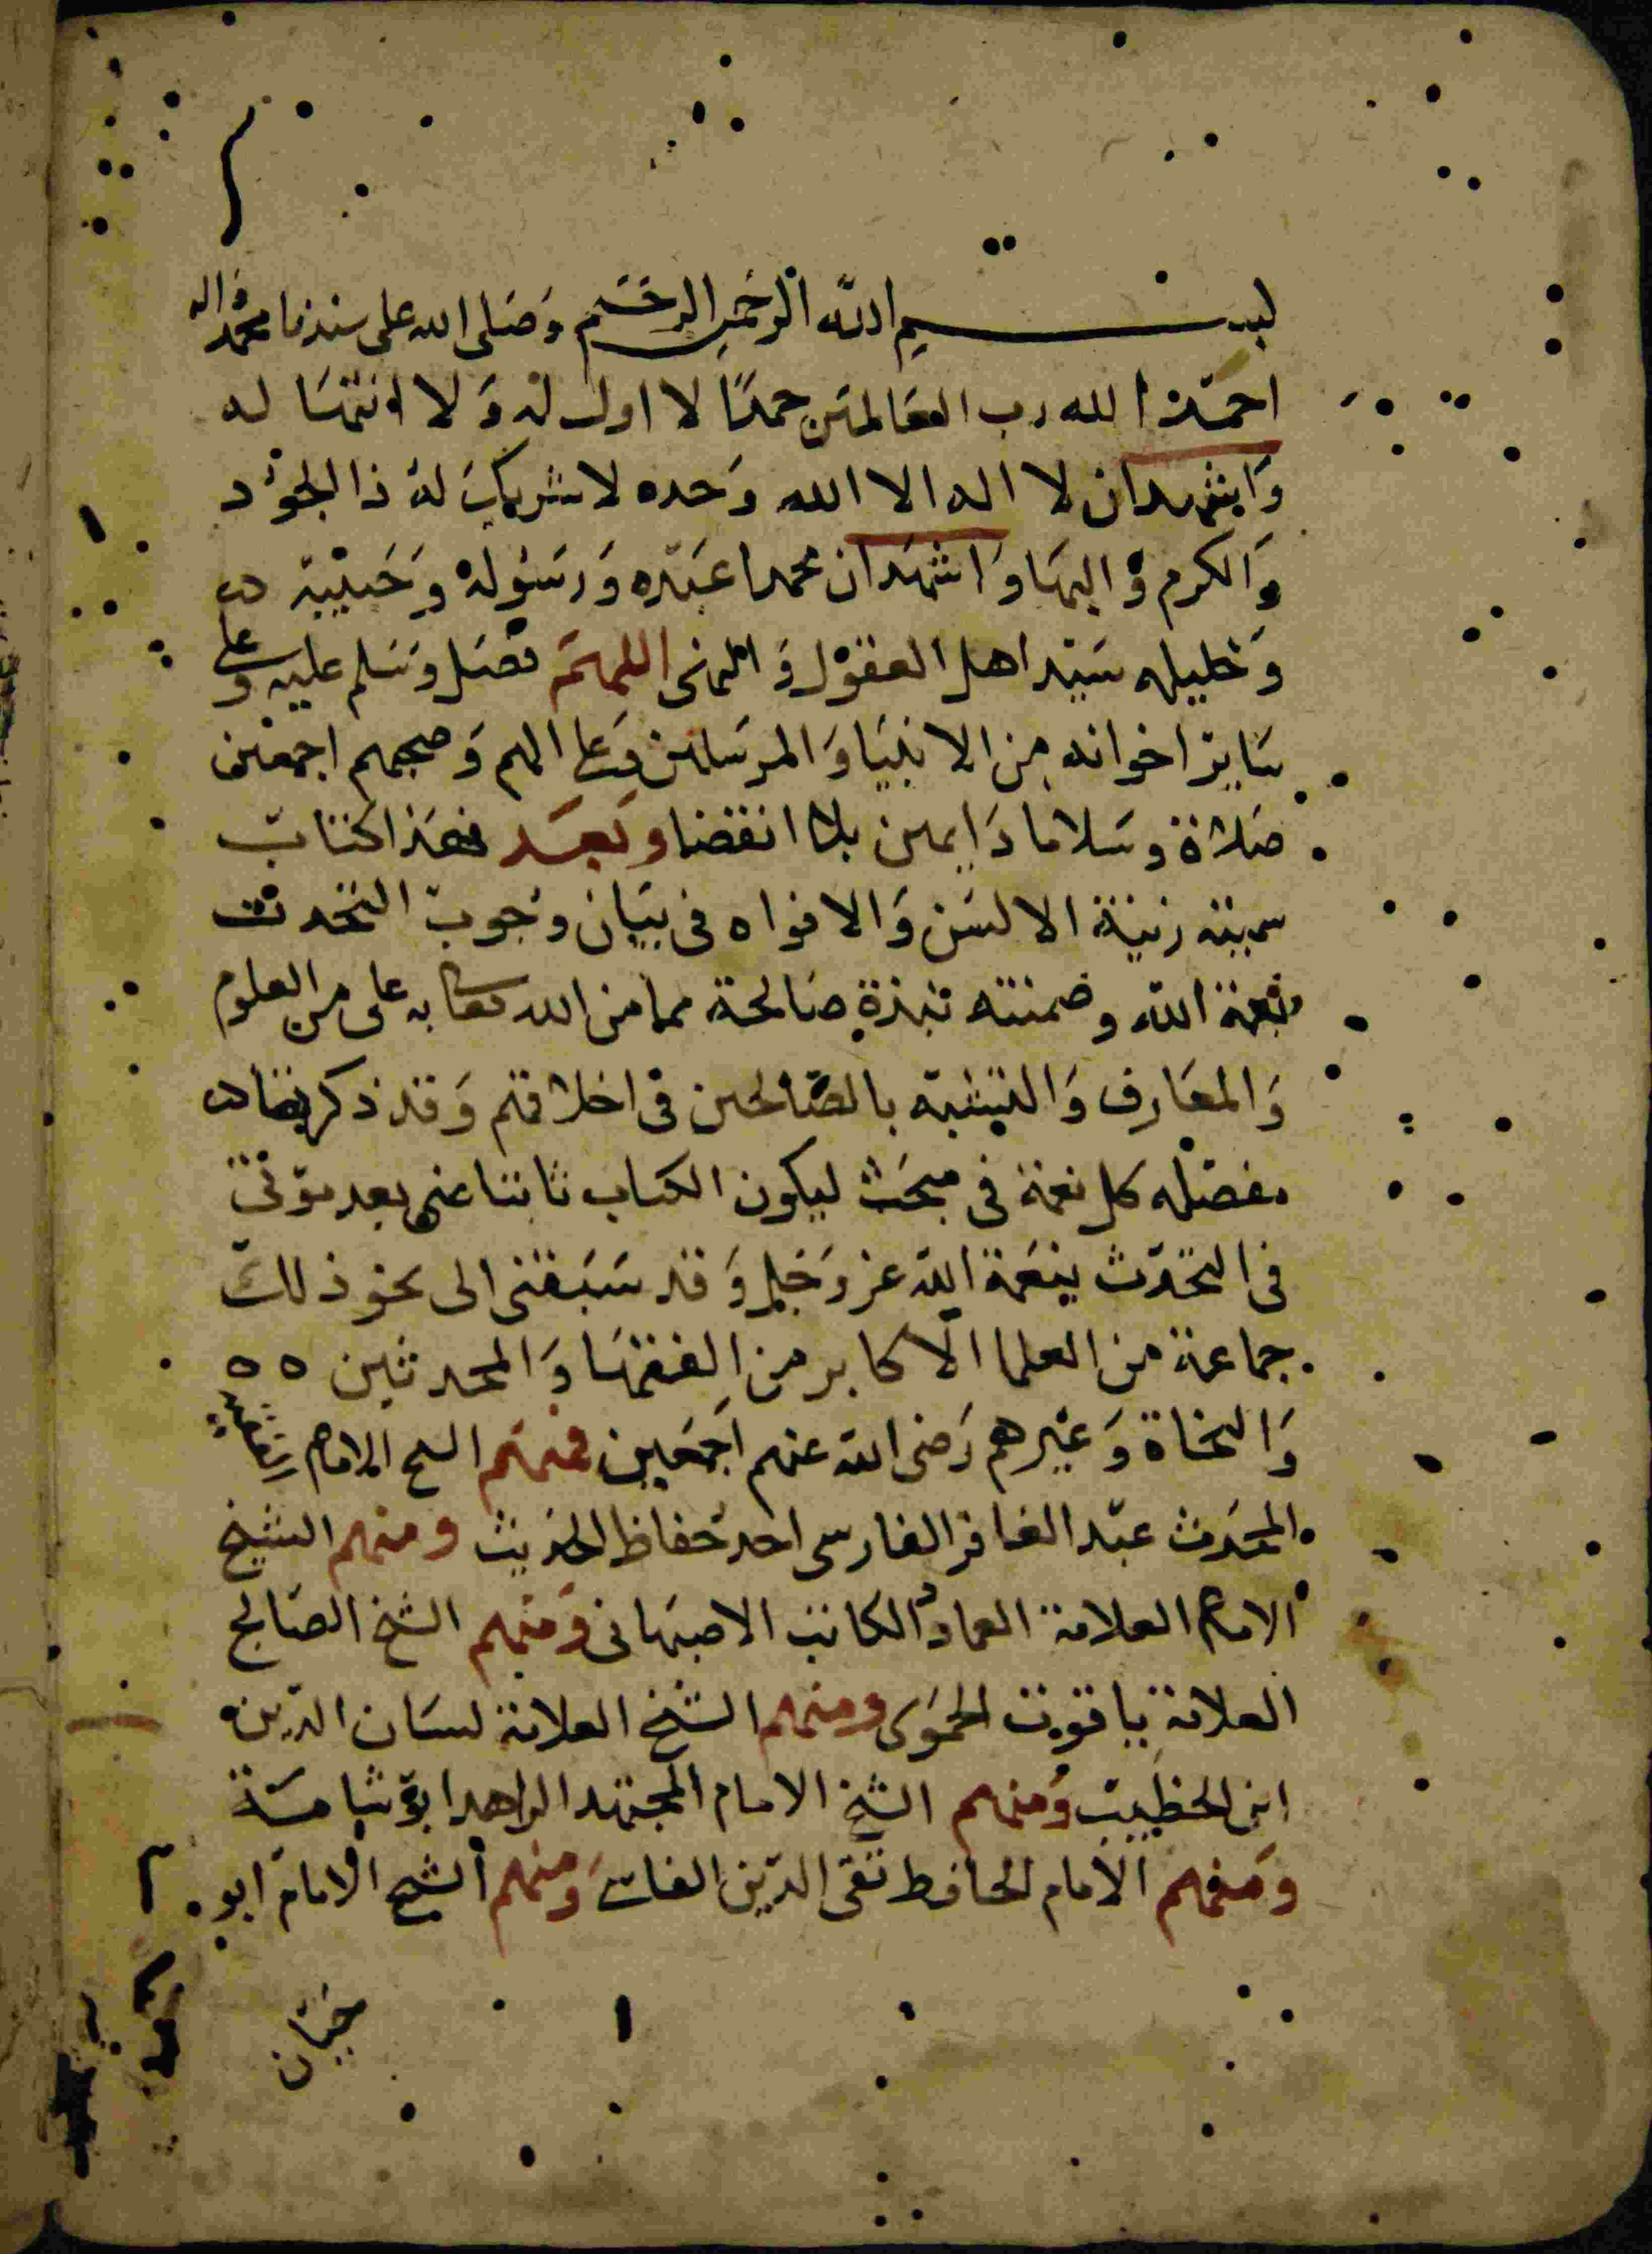 بسم الله الرحمن الرحيم وصلى الله على سيدنا محمد واله
احمد الله رب العالمين حمدًا لا اول له وَلا انتها له
وَاشهد ان لا اله الا الله وَحده لا شريك لهُ ذا الجوُد
وَالكرم وَ البها وَاشهَد ان محمدا عَبده وَرَسُوله وَحَبيبه
وَخليله سَيّد اهل العقوْل وَ النهى اللهمَّ فصَل وَسَلم عليه وعلى
سَاير اخوانه من الانبيَا وَالمرسَلين وعلى الهم وَصحبهم اجمعين
صَلاة وسَلاما دَايمين بلا انقضا وبَعد فهَذا كتابٌ
سميته زينة الالسَن وَالافواه في بيَان وجوب التحدث
بنعمة الله وضمنته نبذة صَالحة مما من الله تعالى به على من العلوم
وَالمعَارف وَالتشبه بالصَّالحين في اخلاقهم وَقد ذكرتها
مفصله كل نعمة في مبحَث ليكون الكتاب نائبا عنى بعد موتي
في التحدّث بنعَمة الله عز وَجَل وَقد سَبَقنى الى نحو ذلك
جماعة من العلما الاكابر من الفقهَا وَالمحدثين ه ه
وَالنحاة وَغيرهم رَضى الله عنهم اجمَعين فمنهَم الشيخ الامام
المحَدث عبَد الغافر الفارسى احد حُفاظ الحديث ومنهم الشيخ
الامام العلامة العماد الكاتب الاصبهانى وَمنهم الشيخ الصَالح
العلامة ياقوت الحمَوى ومنهم الشيخ العلامة لسَان الدّين
ابن الخطِيب وُمنهم الشيخ الامام المجتهد الزاهد ابو شامَة
وَمنهم الامام الحافظ تقى الدّين الفاسى وَمنهم الشيخ الامام ابو
حيَان